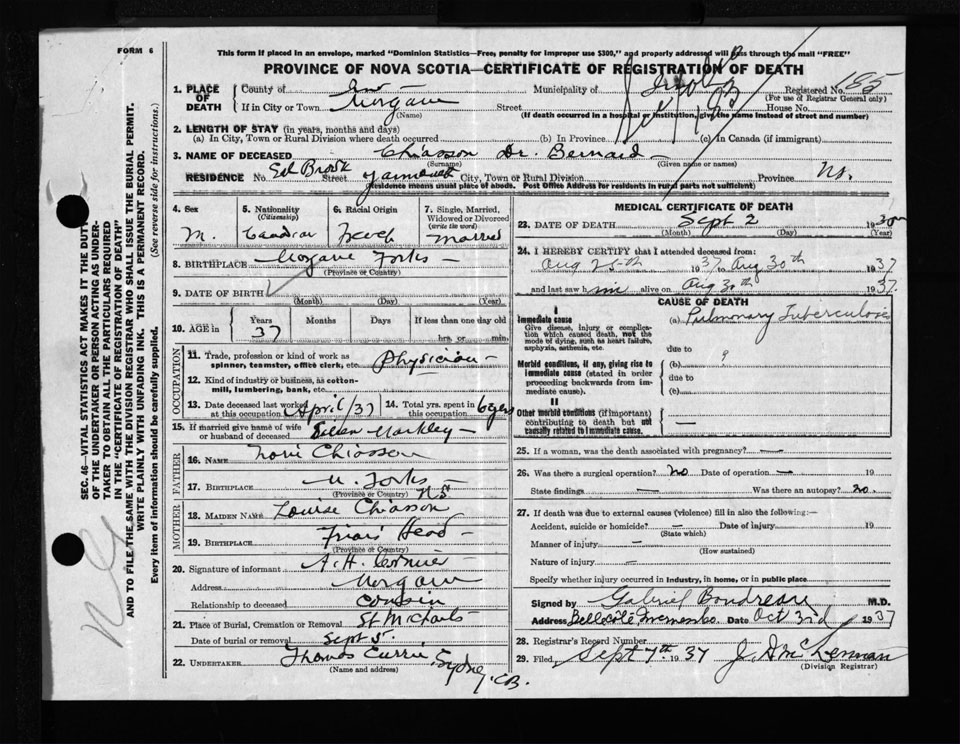 FORM 6
This form if placed in an envelope, marked "Dominion Statistics—Free, penalty for improper use $300," and properly addressed will pass through the mail "FREE"
PROVINCE OF NOVA SCOTIA—CERTIFICATE OF REGISTRATION OF DEATH
1. PLACE OF DEATH
County of
Municipality of
Registered No. 185
(For use of Registrar General only)
If in City or Town
Street
House No.
(Name)
(If death occurred in a hospital or institution, give the name instead of street and number)
2. LENGTH OF STAY (in years, months and days)
(a) In City, Town or Rural Division where death occurred
(b) In Province
(c) In Canada (if immigrant)
3. NAME OF DECEASED Chiasson Dr. Bernard
(Surname) (Given name or names)
RESIDENCE No. Street Yarmouth City, Town or Rural Division Province N.S.
(Residence means usual place of abode. Post Office Address for residents in rural parts not sufficient)
4. Sex
M.
5. Nationality
(Citizenship)
6. Racial Origin
7. Single, Married, Widowed or Divorced
(Write the word)
Married
8. BIRTHPLACE Forks
(Province or Country)
9. DATE OF BIRTH
(Month) (Day) (Year)
10. AGE in
Years
37
Months
Days
If less than one day old
hrs. or min.
OCCUPATION
11. Trade, profession or kind of work as spinner, teamster, office clerk, etc. Physician
12. Kind of industry or business, as cotton-mill, lumbering, bank, etc.
13. Date deceased last worked at this occupation April/37
14. Total yrs. spent in this occupation 6 yrs
15. If married give name of wife or husband of deceased
FATHER
16. NAME Chiasson
17. BIRTHPLACE Forks N.S.
(Province or Country)
MOTHER
18. MAIDEN NAME Louise Chiasson
19. BIRTHPLACE Friar's Head
(Province or Country)
20. Signature of informant A. H. Cormier
Address
Relationship to deceased Cousin
21. Place of Burial, Cremation or Removal St Michaels
Date of burial or removal Sept 5.
22. UNDERTAKER Thomas Currie, Sydney, C.B.
(Name and address)
MEDICAL CERTIFICATE OF DEATH
23. DATE OF DEATH Sept 2
(Month) (Day) (Year)
24. I HEREBY CERTIFY that I attended deceased from:
Aug 25th 1937 to Aug 30th 1937
and last saw him alive on Aug 30th 1937.
CAUSE OF DEATH
I
Immediate cause
Give disease, injury or complication which caused death, not the mode of dying, such as heart failure, asphyxia, asthenia, etc.
(a) Pulmonary Tuberculosis
due to
Morbid conditions, if any, giving rise to immediate cause (stated in order proceeding backwards from immediate cause).
(b) ?
due to
(c)
II
Other morbid conditions (if important) contributing to death but not causally related to immediate cause.
25. If a woman, was the death associated with pregnancy? —
26. Was there a surgical operation? No Date of operation — 19
State findings — Was there an autopsy? No.
27. If death was due to external causes (violence) fill in also the following:—
Accident, suicide or homicide? — Date of injury 19
(State which)
Manner of injury —
(How sustained)
Nature of injury —
Specify whether injury occurred in industry, in home, or in public place
Signed by Gabriel Boudreau M.D.
Address Belle Cote Inverness Co. Date Oct 3rd 1937
28. Registrar's Record Number
29. Filed, Sept 7th 1937
(Division Registrar)
SEC. 46—VITAL STATISTICS ACT MAKES IT THE DUTY
OF THE UNDERTAKER OR PERSON ACTING AS UNDER-
TAKER TO OBTAIN ALL THE PARTICULARS REQUIRED
IN THE "CERTIFICATE OF REGISTRATION OF DEATH"
AND TO FILE THE SAME WITH THE DIVISION REGISTRAR WHO SHALL ISSUE THE BURIAL PERMIT.
WRITE PLAINLY WITH UNFADING INK. THIS IS A PERMANENT RECORD.
Every item of information should be carefully supplied. (See reverse side for instructions.)